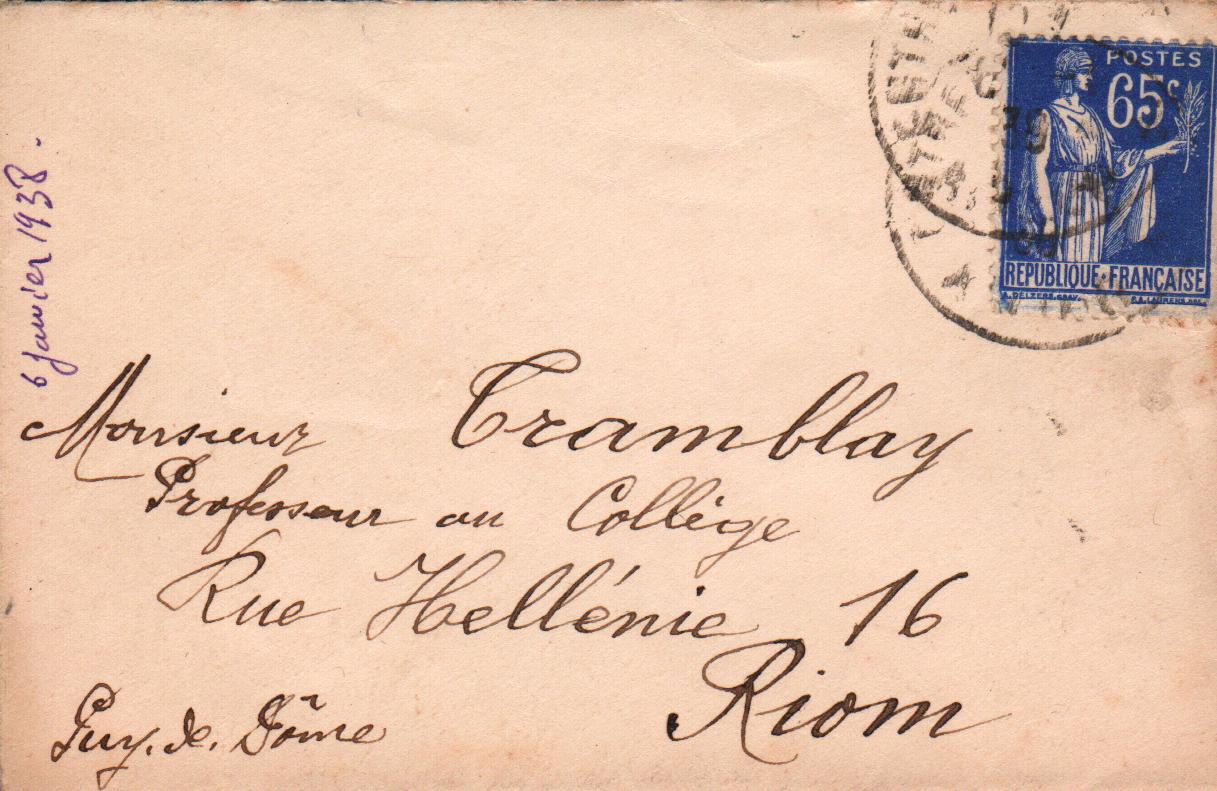 POSTES
65c
REPUBLIQUE·FRANÇAISE
6 janvier 1938.
Monsieur Tramblay
Professeur au Collège
Rue Hellénie 16
Riom
Puy. de. Dôme